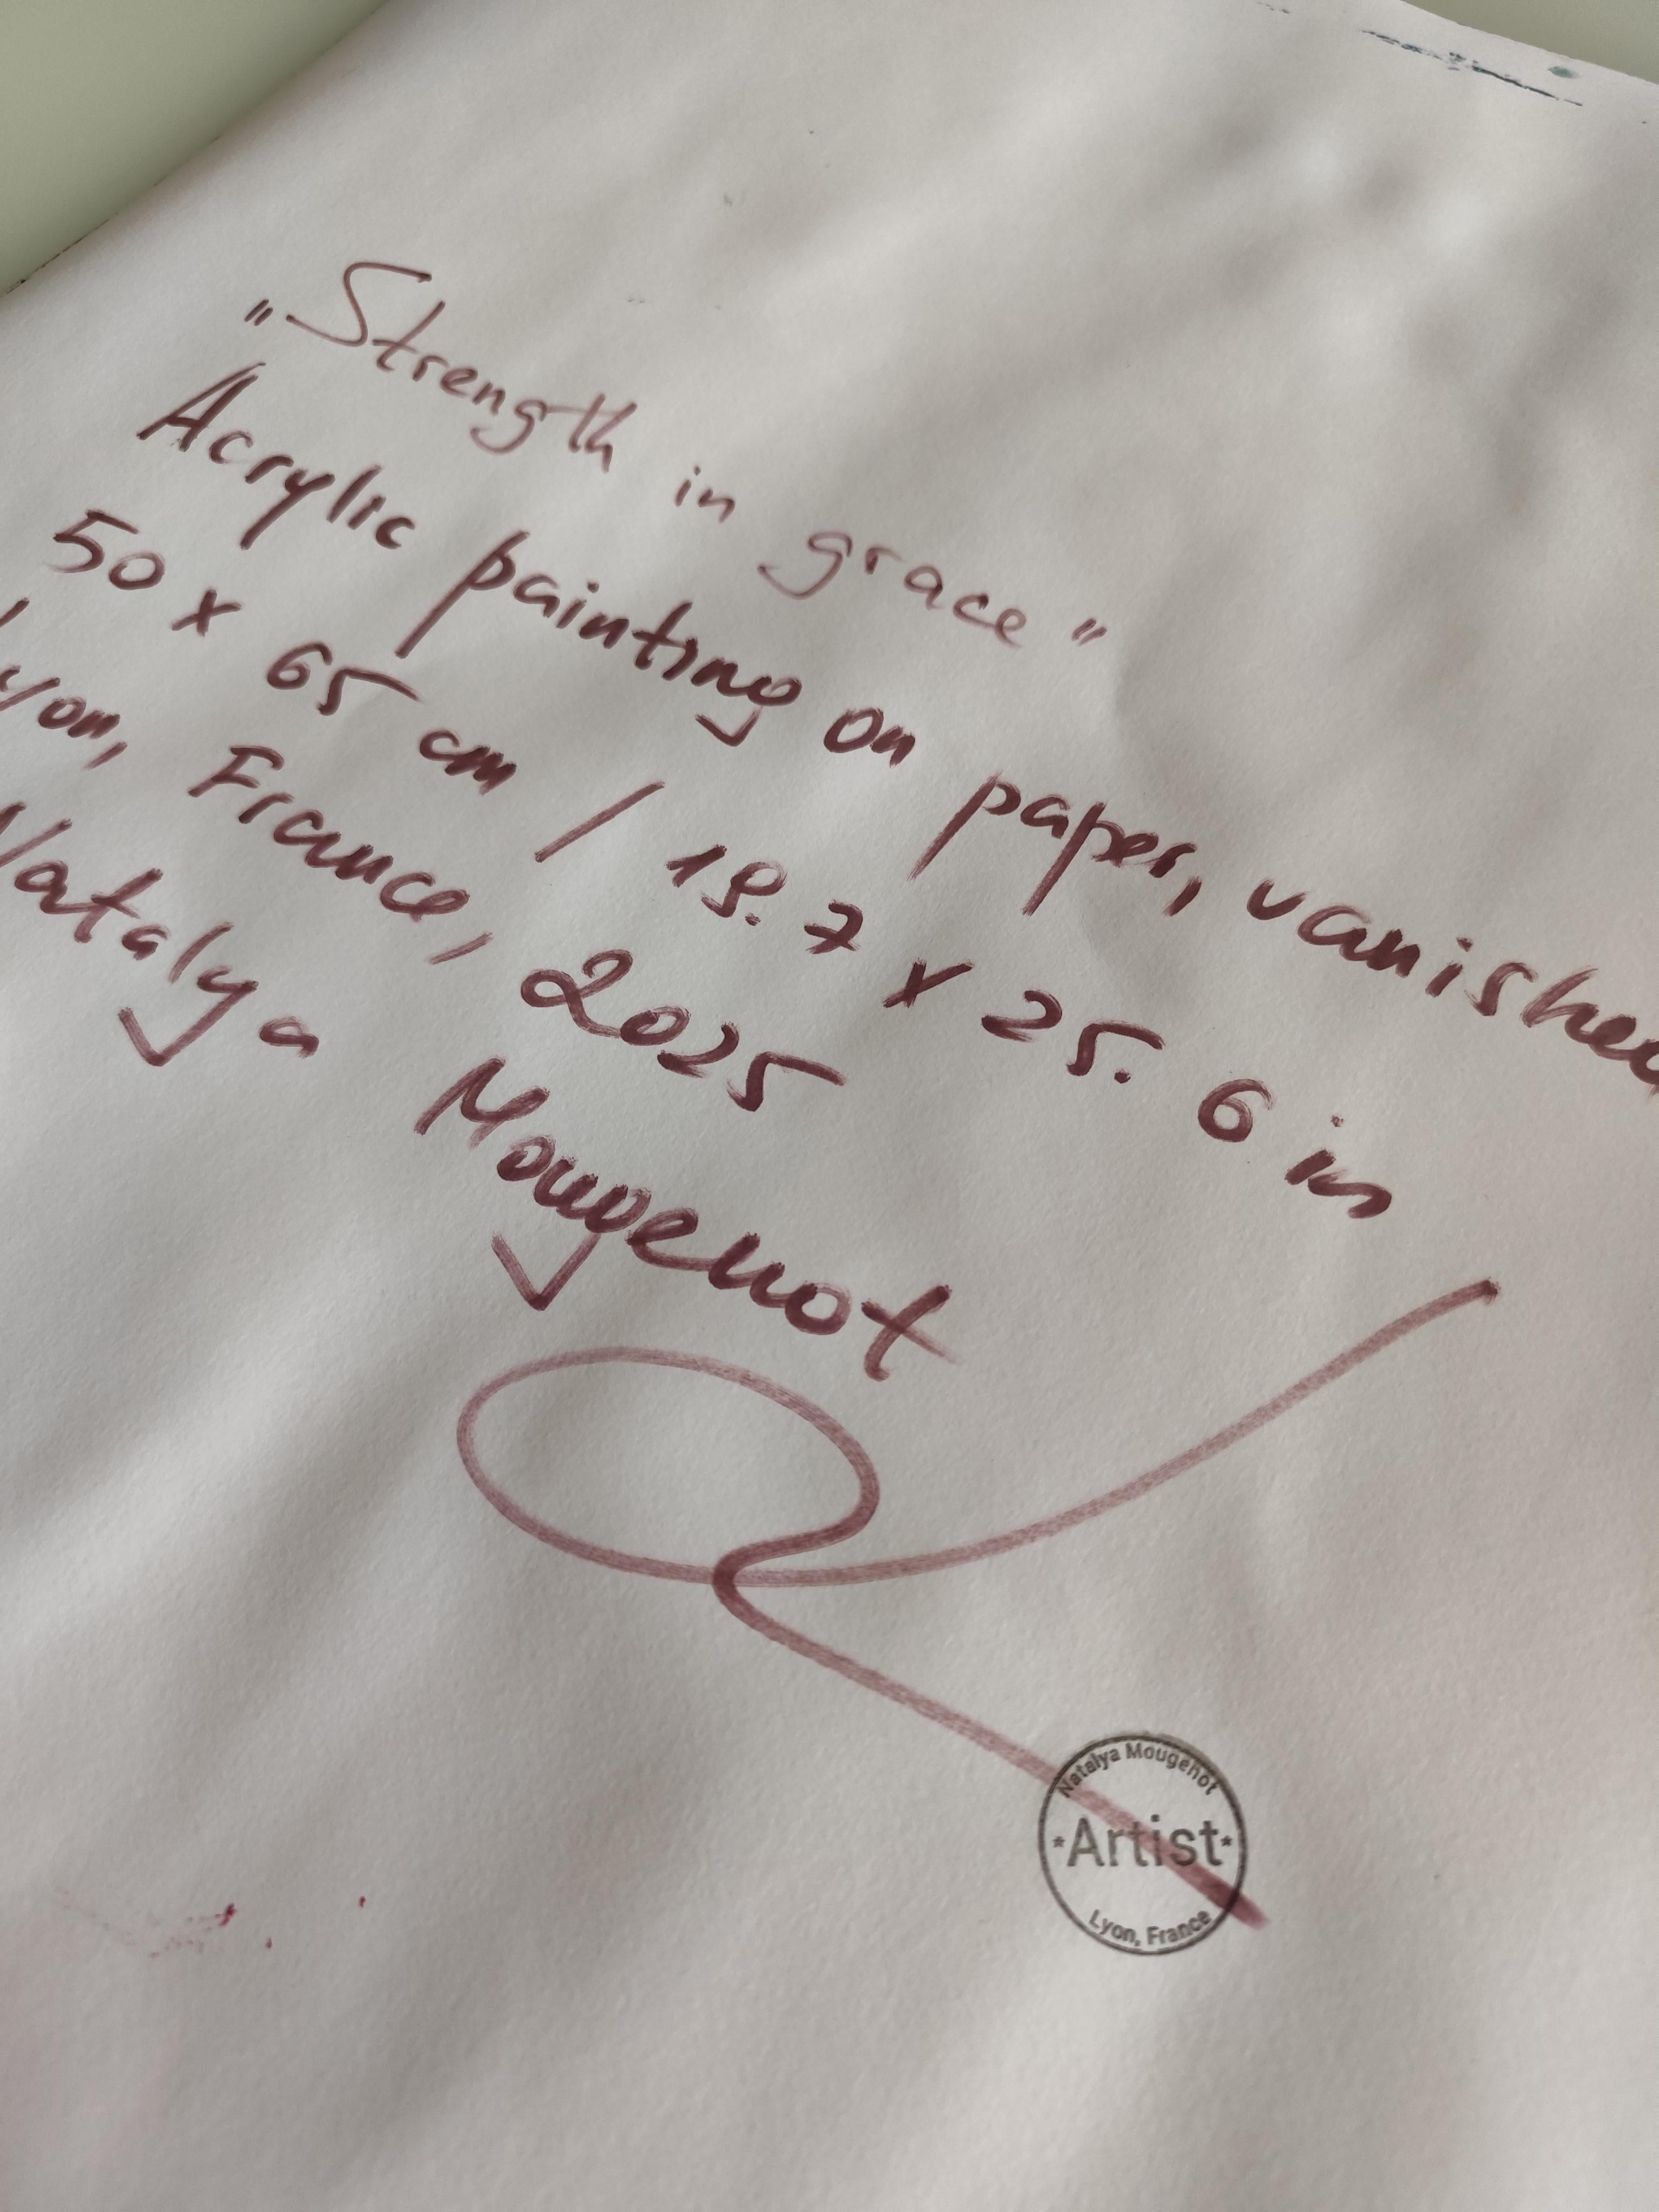 „Strength in grace"
Acrylic painting on paper, vanished
50 x 65 cm / 19.7 x 25.6 in
Lyon, France, 2025
Natalya Mougenot
Natalya Mougenot
*Artist*
Lyon, France